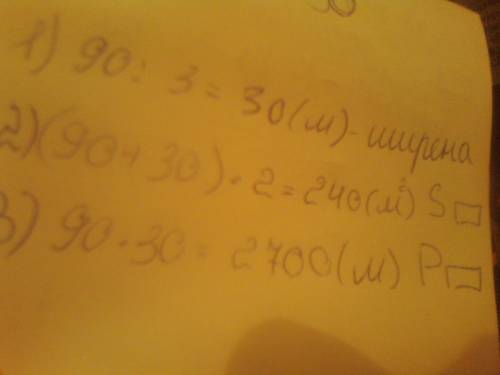 30
1) 90 : 3 = 30(м)-ширена
2)(90+30)·2=240(м²) S▭
3) 90·30= 2700(м) P▭